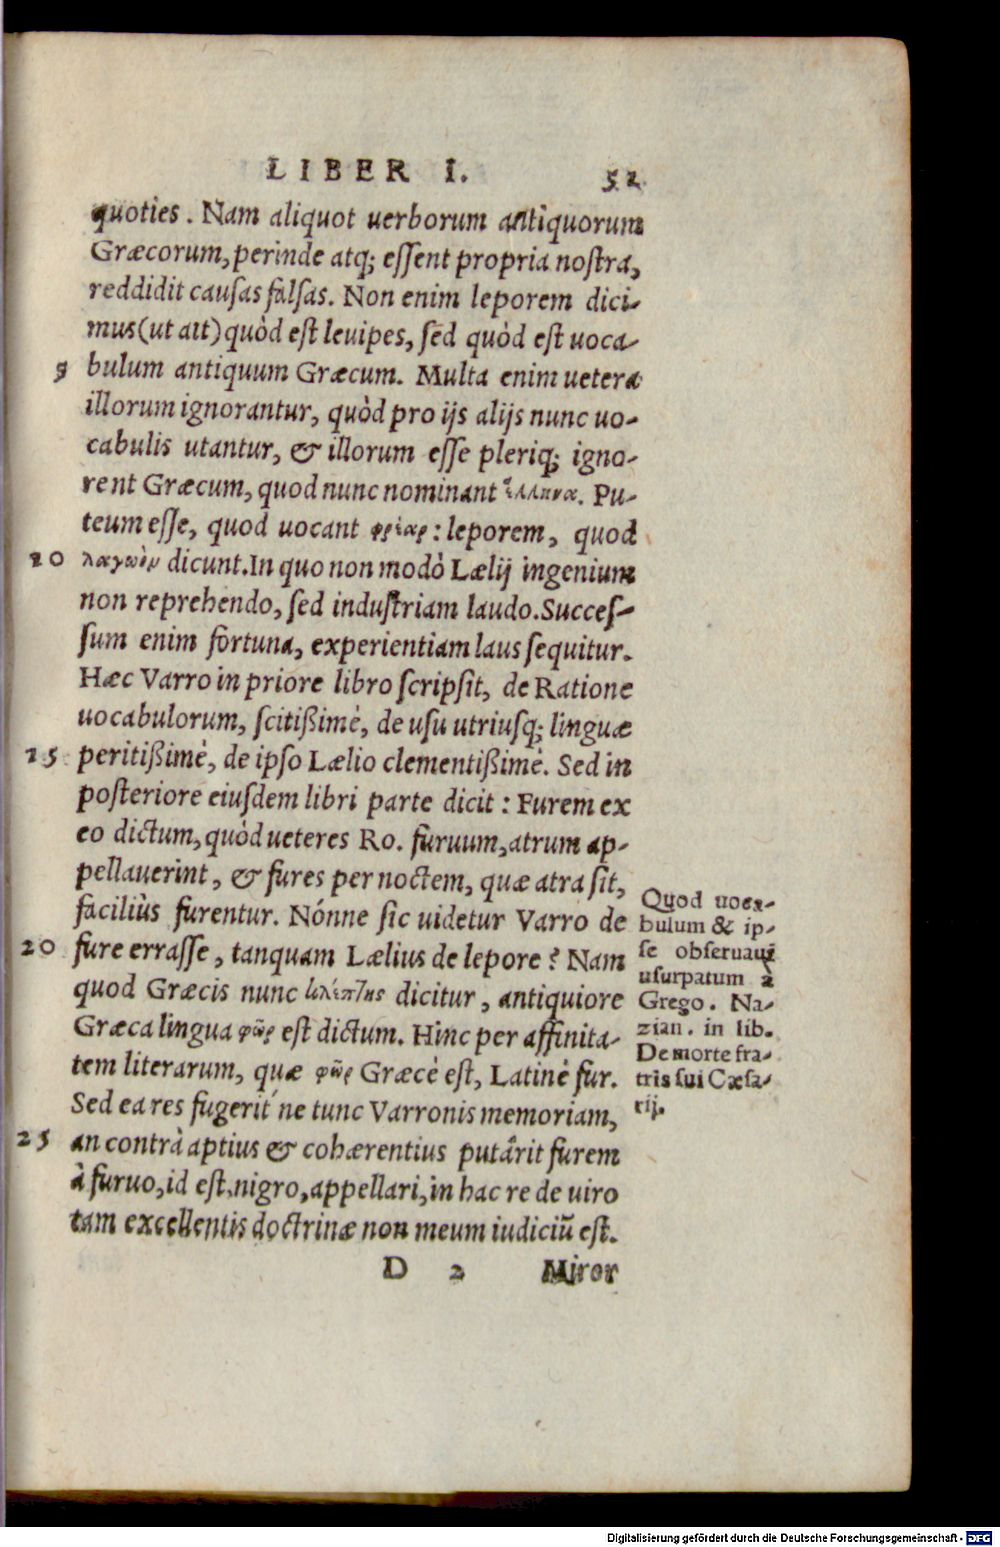 LIBER I. 52
quoties. Nam aliquot uerborum antiquorum
Græcorum, perinde atq; eſſent propria noſtra,
reddidit cauſas falſas. Non enim leporem dici-
mus (ut ait) quòd eſt leuipes, ſed quòd eſt uoca-
5 bulum antiquum Græcum. Multa enim uetera
illorum ignorantur, quòd pro ijs alijs nunc uo-
cabulis utantur, & illorum eſſe pleriq; igno-
rent Græcum, quod nunc nominant ἕλληνα. Pu-
teum eſſe, quod uocant φρέαρ: leporem, quod
10 λαγωὸν dicunt. In quo non modò Lælij ingenium
non reprehendo, ſed induſtriam laudo. Succeſ-
ſum enim fortuna, experientiam laus ſequitur.
Hæc Varro in priore libro ſcripſit, de Ratione
uocabulorum, ſcitißimè, de uſu utriuſq; linguæ
25 peritißimè, de ipſo Lælio clementißimè. Sed in
poſteriore eiuſdem libri parte dicit: Furem ex
eo dictum, quòd ueteres Ro. furuum, atrum ap-
pellauerint, & fures per noctem, quæ atra ſit,
faciliùs furentur. Nónne ſic uidetur Varro de
20 fure erraſſe, tanquam Lælius de lepore? Nam
quod Græcis nunc κλέπτης dicitur, antiquiore
Græca lingua φὼρ eſt dictum. Hinc per affinita-
tem literarum, quæ φὼρ Græcè eſt, Latinè fur.
Sed ea res fugerit'ne tunc Varronis memoriam,
25 an contrà aptius & cohærentius putârit furem
à furuo, id eſt, nigro, appellari, in hac re de uiro
tam excellentis doctrinæ non meum iudiciũ eſt.
Quod uoca-
bulum & ip-
ſe obſeruaui
uſurpatum à
Grego. Na-
zian. in lib.
De morte fra-
tris ſui Cæſa-
rij.
D 2 Miror
Digitalisierung gefördert durch die Deutsche Forschungsgemeinschaft - DFG